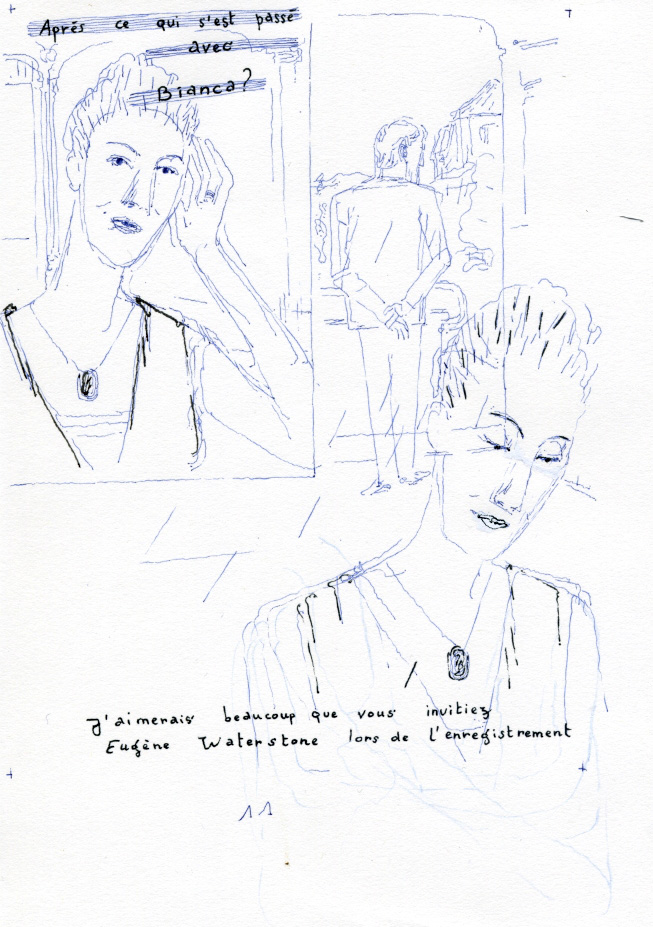 Après ce qui s'est passé
avec
Bianca?
J'aimerais beaucoup que vous invitiez
Eugène Waterstone lors de l'enregistrement
11